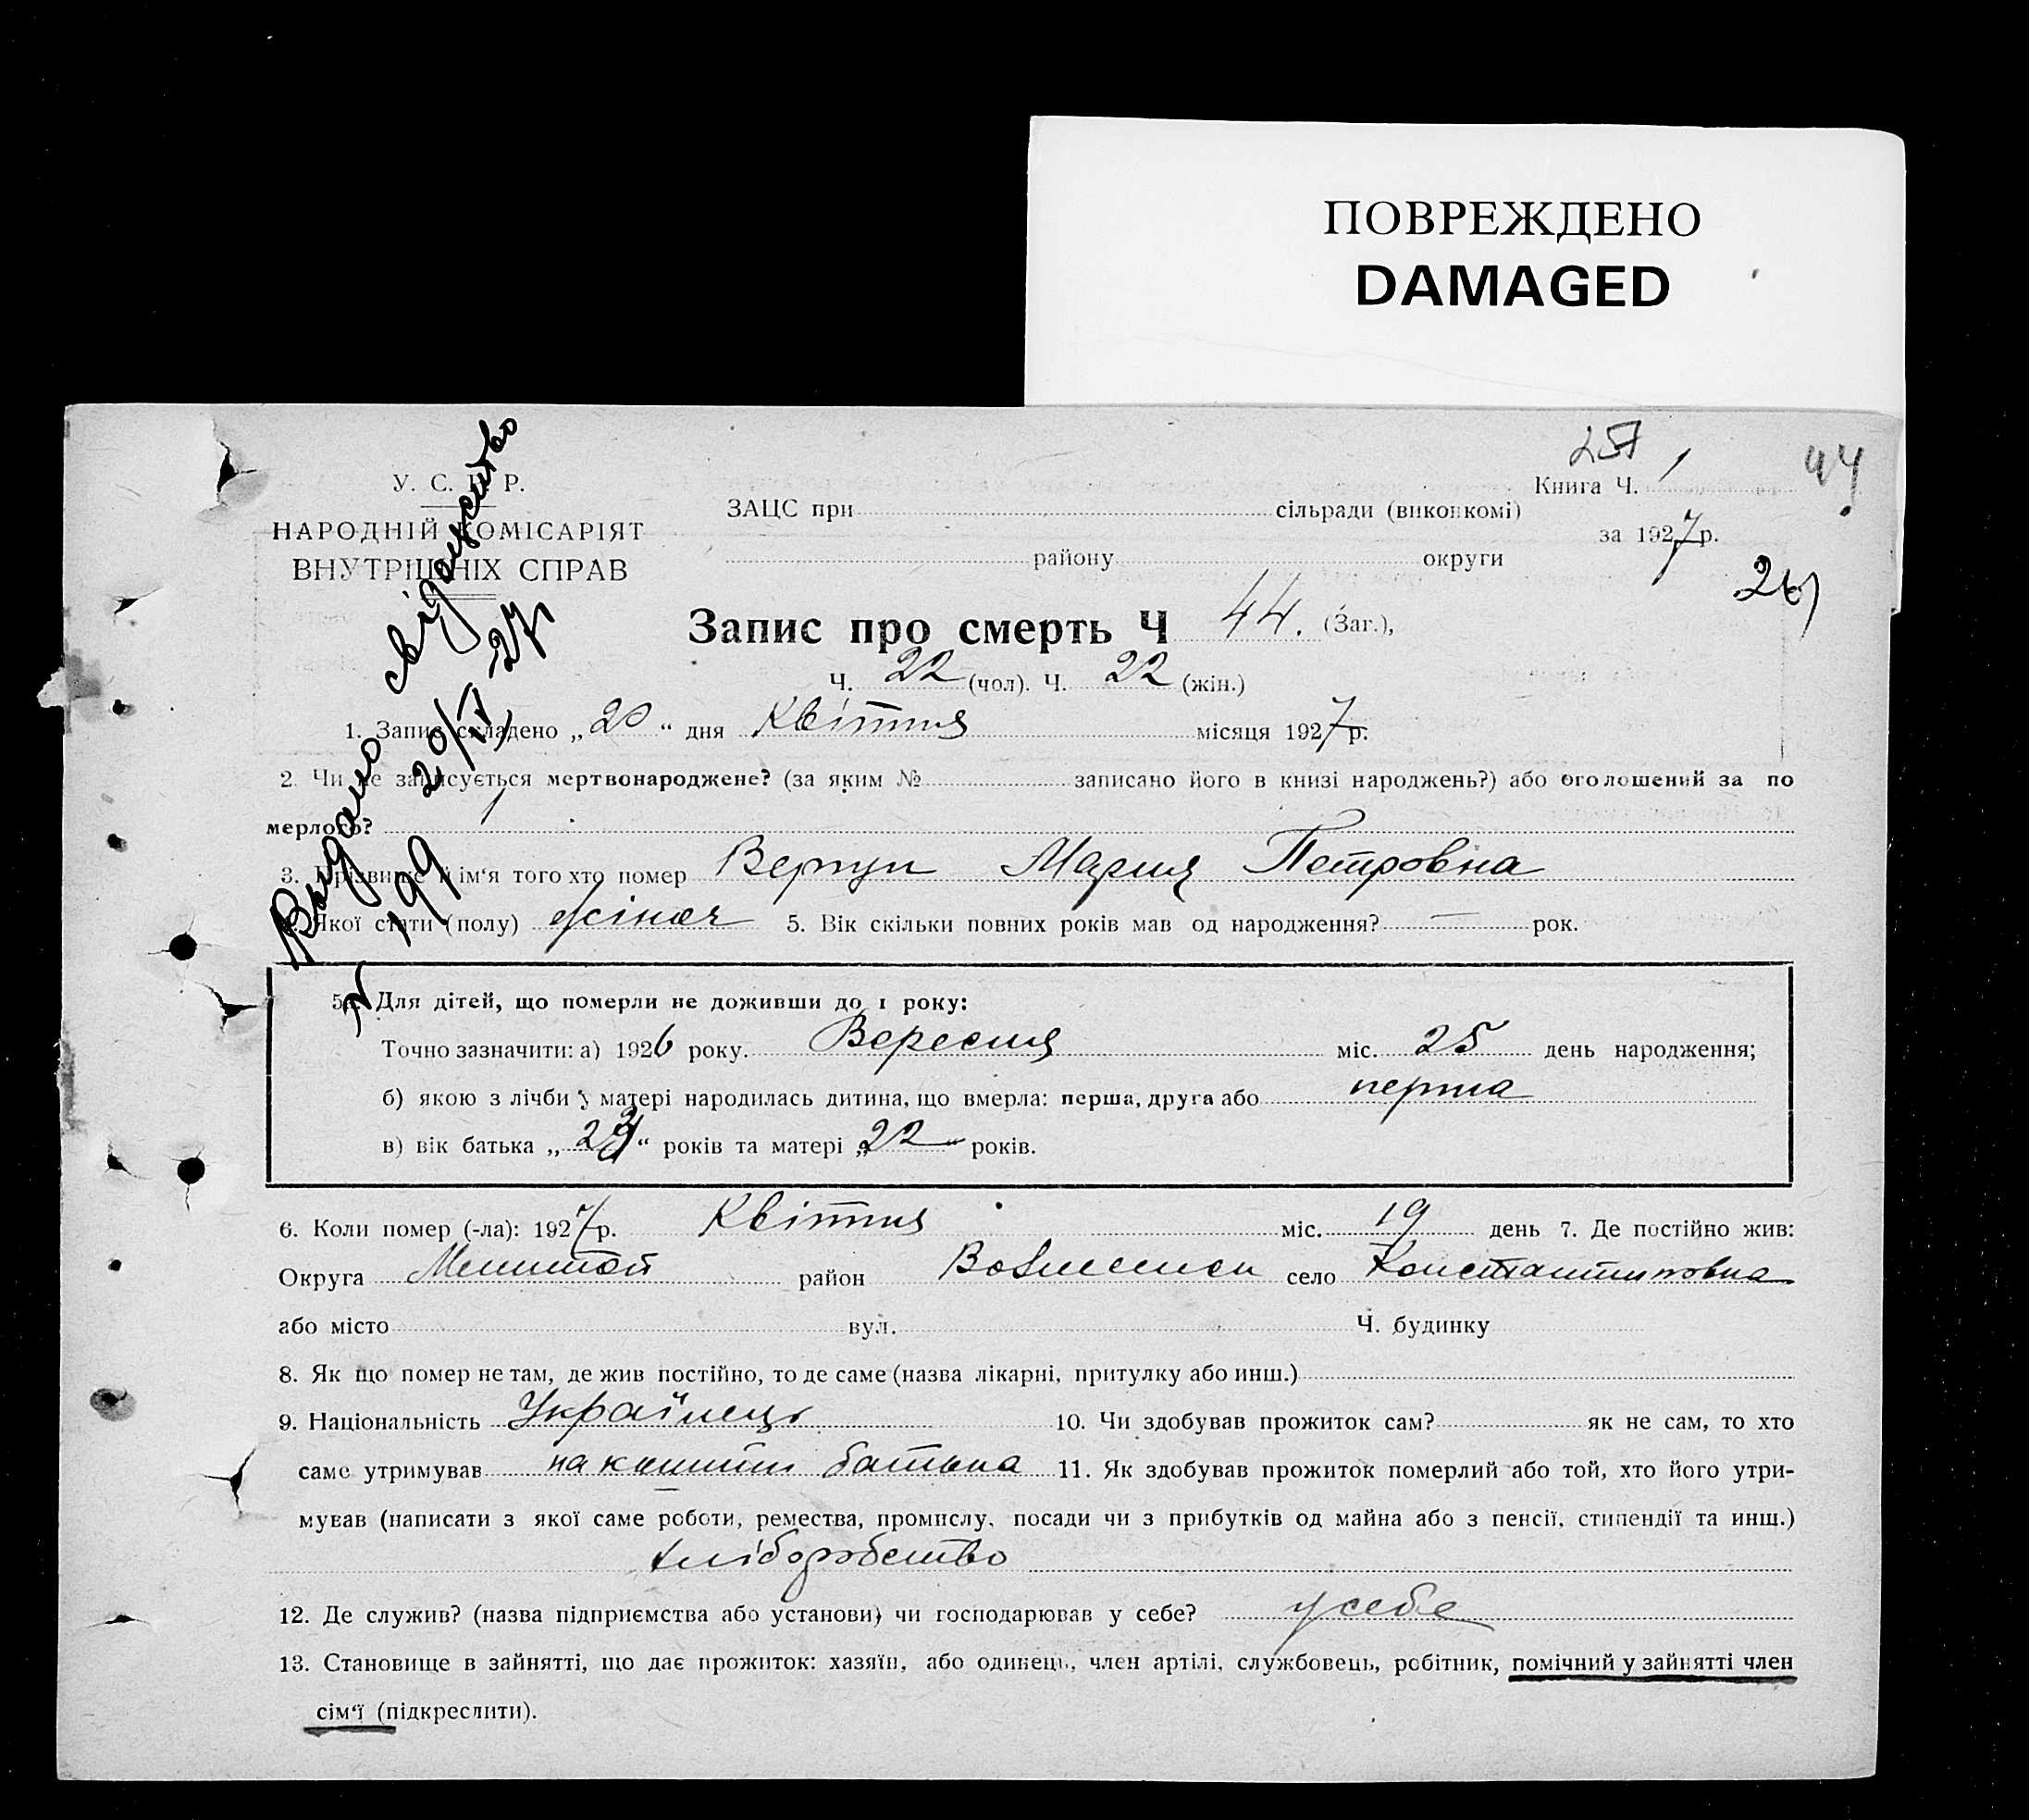 ПОВРЕЖДЕНО
DAMAGED
У. С. Р. Р.
НАРОДНІЙ КОМІСАРІЯТ
ВНУТРІШНІХ СПРАВ
Видано свідоцтво
20/IV 27
№ 199
ЗАЦС при сільради (виконкомі)
району округи
Книга Ч. 1
44
за 1927 р.
Запис про смерть Ч 44. (Заг.),
Ч. 22 (чол). Ч. 22 (жін.)
1. Запис складено „20“ дня Квітня місяця 1927 р.
2. Чи не записується мертвонароджене? (за яким № записано його в книзі народжень?) або оголошений за по
мерлого?
3. Прізвище й ім‘я того хто помер Вертун Мария Петровна
4. Якої стати (полу) жіноч 5. Вік скільки повних років мав од народження? — рок.
5а. Для дітей, що померли не доживши до 1 року:
Точно зазначити: а) 1926 року. Вересня міс. 25 день народження;
б) якою з лічби у матері народилась дитина, що вмерла: перша, друга або перша
в) вік батька „ “ років та матері „22“ років.
6. Коли помер (-ла): 1927 р. Квітня міс. 19 день 7. Де постійно жив:
Округа Мелитоп район Вознесенсн село Константиновна
або місто вул. Ч. будинку
8. Як що помер не там, де жив постійно, то де саме (назва лікарні, притулку або инш.)
9. Національність Українець 10. Чи здобував прожиток сам? як не сам, то хто
саме утримував на кошти батька 11. Як здобував прожиток померлий або той, хто його утри-
мував (написати з якої саме роботи, ремества, промислу, посади чи з прибутків од майна або з пенсії, стипендії та инш.)
хліборобство
12. Де служив? (назва підприємства або установи) чи господарював у себе? у себе
13. Становище в зайнятті, що дає прожиток: хазяїн, або одинець, член артілі, службовець, робітник, помічний у зайнятті член
сім‘ї (підкреслити).